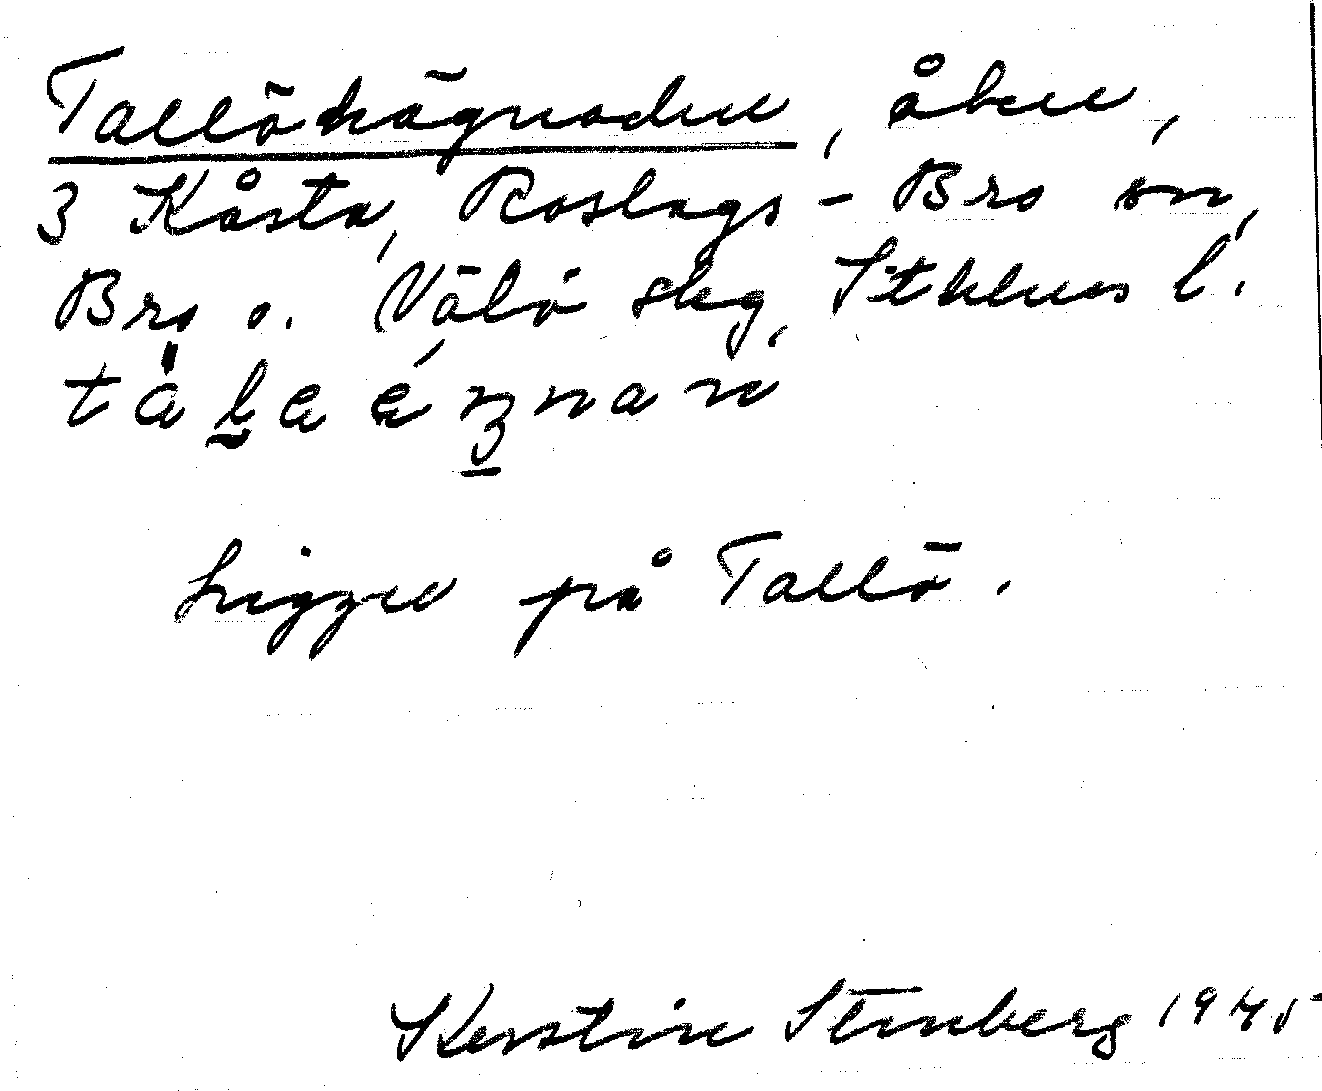 Tallöhägnaden, åker,
3 Kåsta, Roslags-Bro sn,
Bro o. Vätö skg, Sthlms l.
Ligger på Tallö.
Kerstin Stenberg 1945